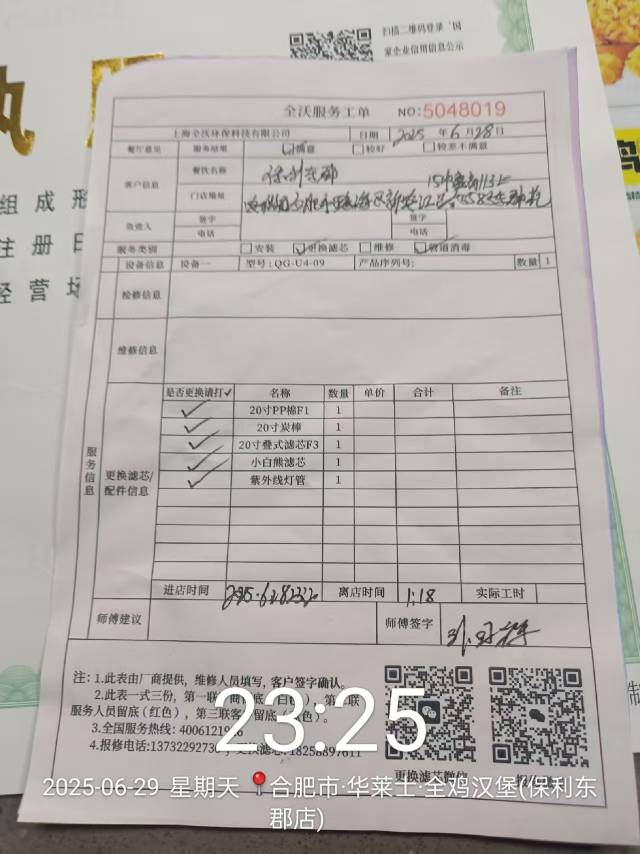 扫描二维码登录'国
家企业信用信息公示
组 成 形
注 册 日
经 营 场
全沃服务工单 NO:5048019
上海全沃环保科技有限公司 日期 2025 年 6 月 28 日
餐厅意见 服务结果 满意 较好 较差不满意
客户信息 餐饮名称
门店地址
负责人 签字 签字
电话 电话
服务类别 安装 更换滤芯 维修 管道消毒
设备信息 设备一 型号:QG-U4-09 产品序列号: 数量 1
检修信息
维修信息
服务信息
更换滤芯/
配件信息
是否更换请打✓ 名称 数量 单价 合计 备注
✓ 20寸PP棉F1 1
✓ 20寸炭棒 1
✓ 20寸叠式滤芯F3 1
✓ 小白熊滤芯 1
✓ 紫外线灯管 1
进店时间 离店时间 1:18 实际工时
师傅建议 师傅签字
注: 1.此表由厂商提供, 维修人员填写, 客户签字确认。
2.此表一式三份, 第一联
服务人员留底 (红色) , 第三联客
3.全国服务热线: 4006121
4.报修电话:1373229273
更换滤芯微信
23:25
2025-06-29 星期天 合肥市·华莱士·全鸡汉堡(保利东
郡店)